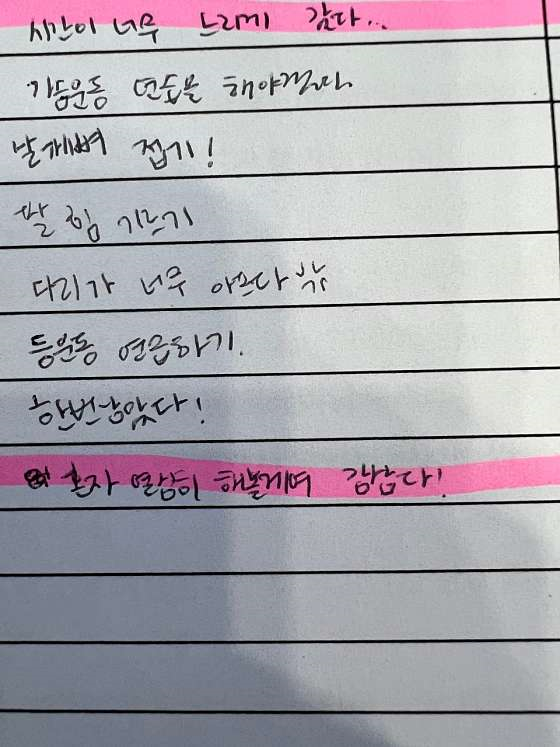 시간이 너무 느리게 간다...
가슴운동 연습을 해야겠다.
날개뼈 접기!
팔 힘 기르기
다리가 너무 아프다
등운동 연습하기.
한번 남았다!
혼자 열심히 해볼게여 감삼다!